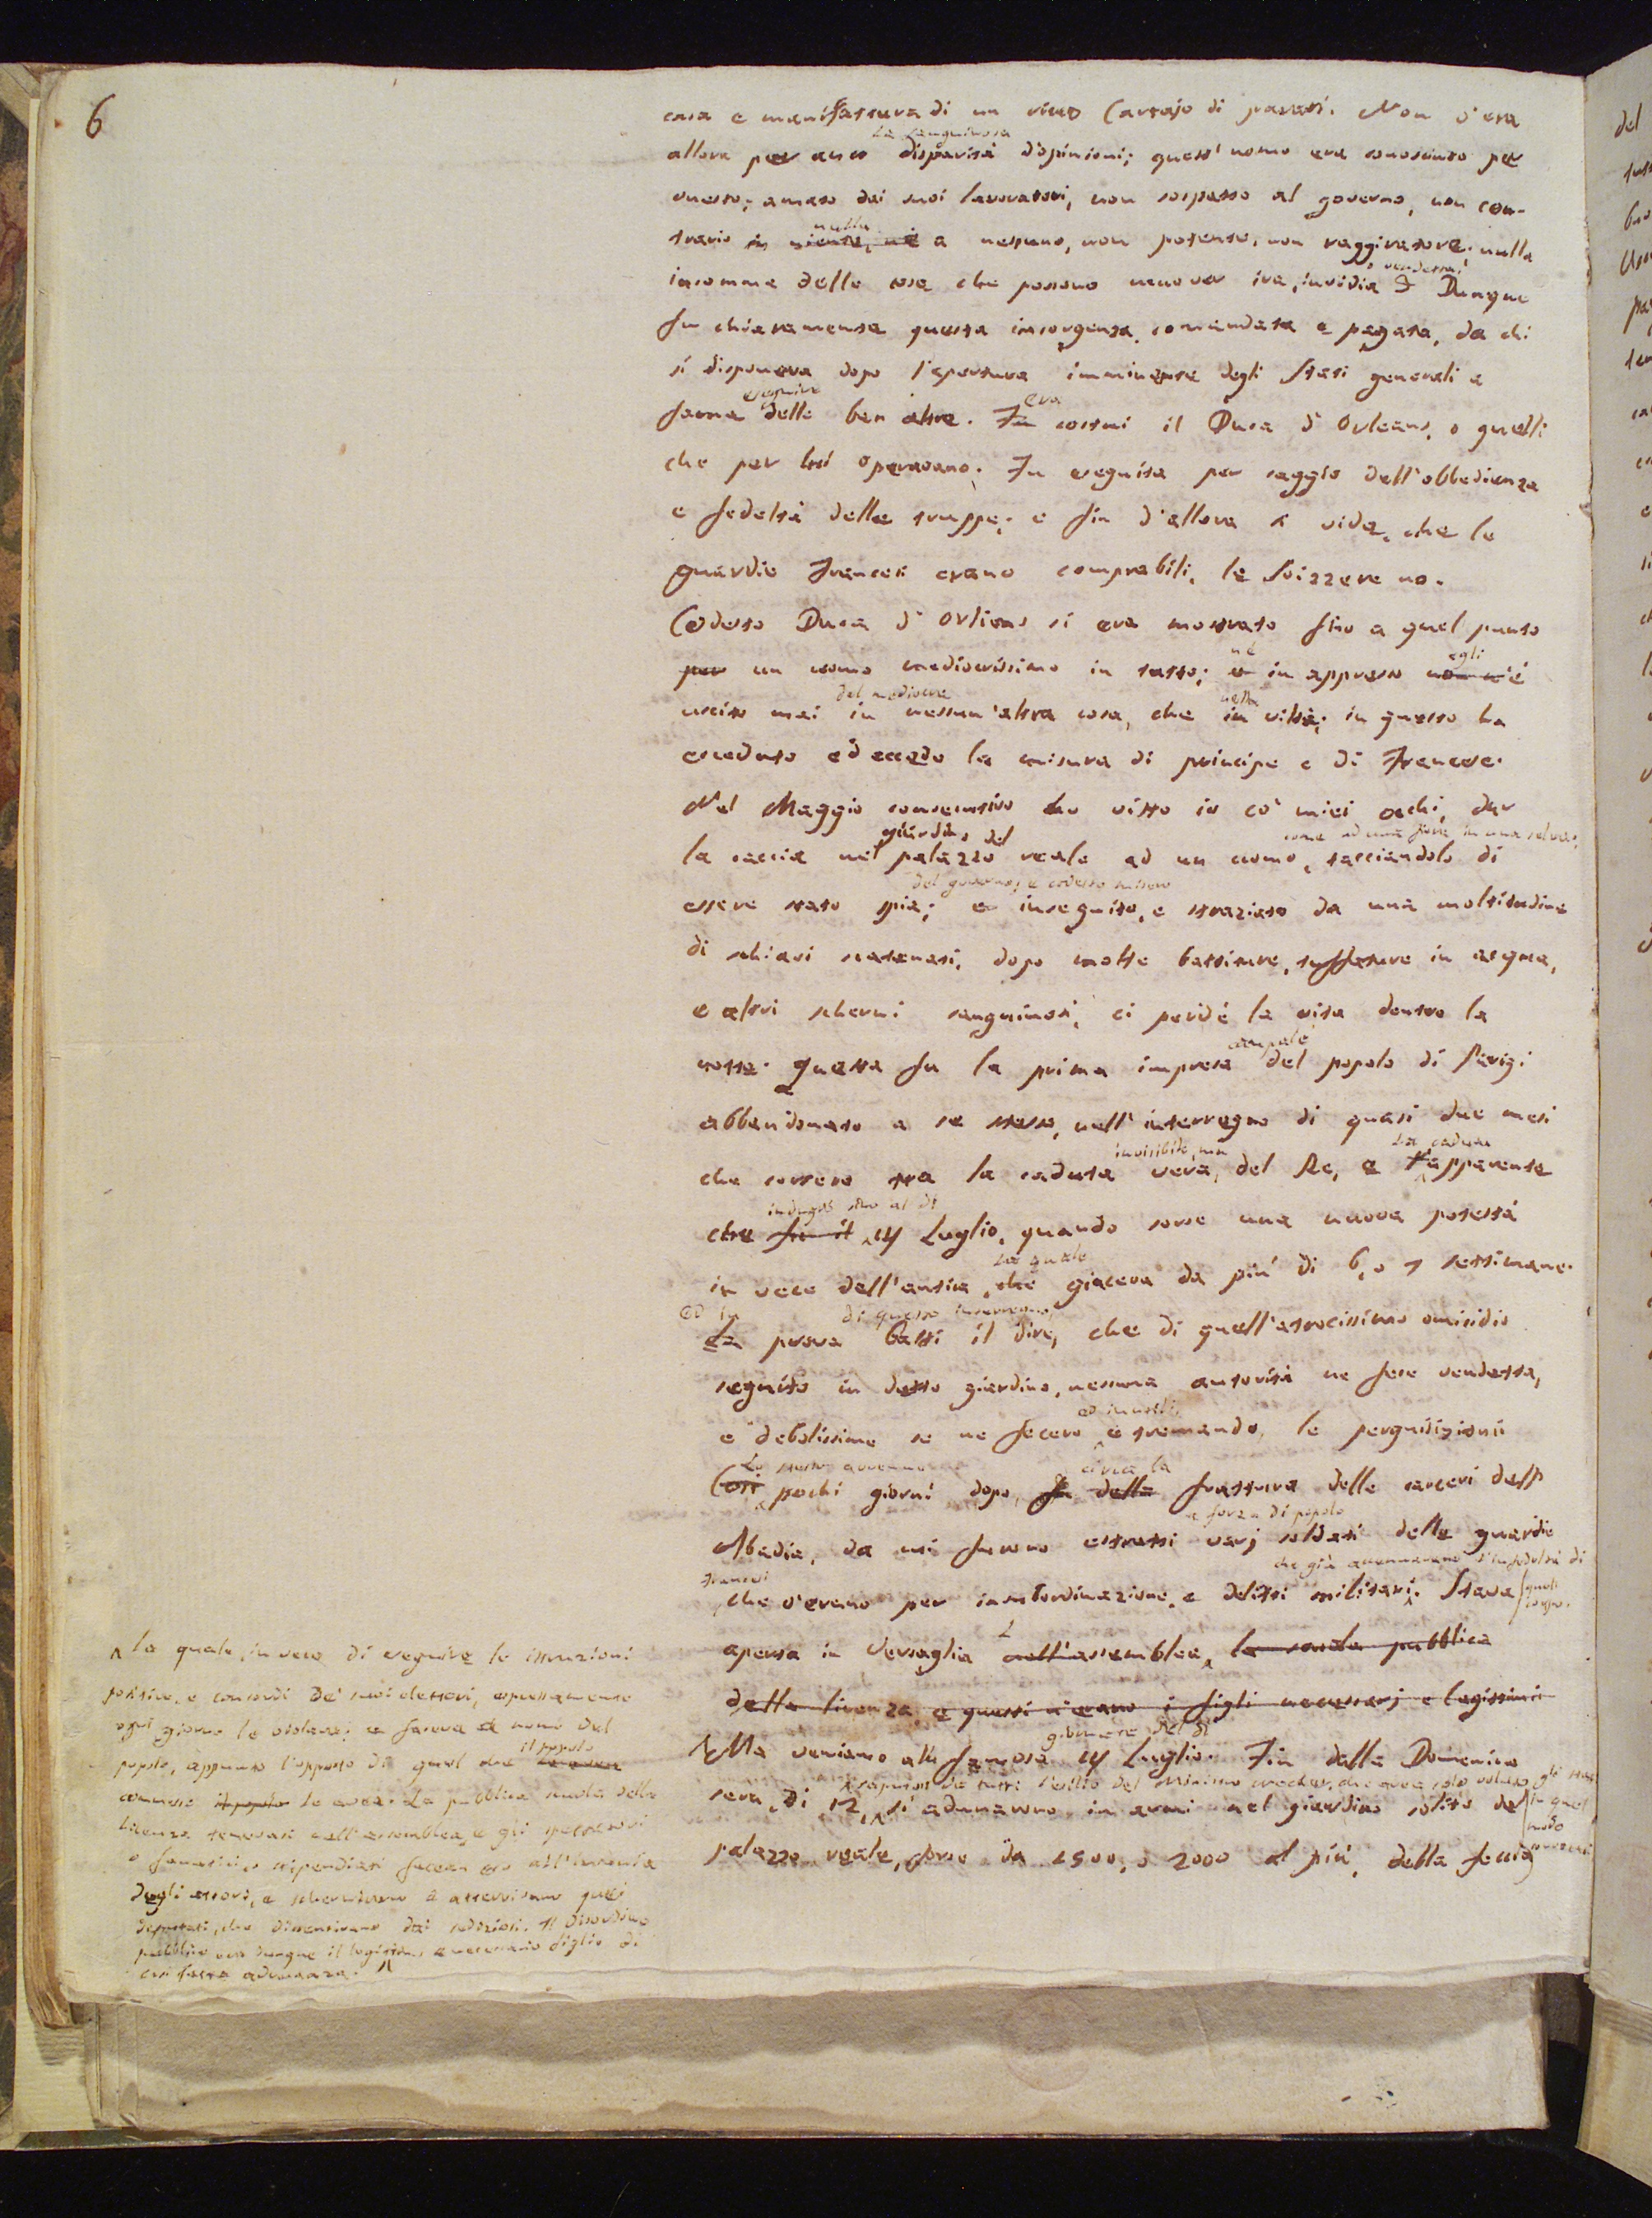 6
casa e manifattura di un ricco Cartajo di parati. Non v'era
La sanguinosa
allora per anco disparità d'opinioni; quest'uomo era conosciuto per
onesto; amato dai suoi lavoratori, non sospetto al governo, non con-
nulla
trario in niente, nè a nessuno, non potente, non raggiratore; nulla
o vendetta.
insomma delle cose che possono muover ira, invidia & Dunque
fu chiaramente questa insorgenza, comandata e pagata, da chi
si disponeva dopo l'apertura imminente degli Stati generali a
eseguire era
farne delle ben altre. Fu costui il Duca d'Orleans, o quelli
che per lui operavano. Fu eseguita per saggio dell'obbedienza
e fedeltà delle truppe; e fin d'allora si vide, che le
guardie Francesi erano comprabili, le Svizzere no.
Codesto Duca d'Orleans si era mostrato fino a quel punto
nè egli
per un uomo mediocrissimo in tutto; e in appresso non è
del mediocre nella
uscito mai in nessun'altra cosa, che in viltà; in questo ha
ecceduto ed eccede la misura di principe e di Francese.
Nel Maggio consecutivo ho visto io co' miei occhi, dar
giardino del come ad una fiera in una selva;
la caccia nel palazzo reale ad un uomo, tacciandolo di
del governo; e codesto misero
essere stato spia; e inseguito, e straziato da una moltitudine
di schiavi scatenati, dopo molte battiture, tuffature in acqua,
e altri scherni sanguinosi, ci perdè la vita dentro la
campale
notte. Questa fu la prima impresa del popolo di Parigi
abbandonato a se stesso, nell'interregno di quasi due mesi
invisibile, ma La caduta
che corsero tra la caduta vera, del Re, e l'apparente
indugiò sino al dì
che fu il 14 Luglio, quando sorse una nuova potestà
la quale
in vece dell'antica, che giaceva da più di 6, o 7 settimane.
ed in di questo interregno,
La prova basti il dire, che di quell'atrocissimo omicidio
seguito in detto giardino, nessuna autorità ne fece vendetta,
ed inutili
e debolissime se ne fecero e tremando, le perquisizioni
Lo stesso avvenne circa la
Così pochi giorni dopo, fu della frattura delle carceri dell'
a forza di popolo
Abadia, da cui furono estratti varj soldati delle guardie
Francesi che già accennavano l'infedeltà di
che v'erano per insubordinazione, e delitti militari. Stava quel corpo.
L
aperta in Versaglia nell'assemblea, la scuola pubblica
della licenza, e questi n'erano i figli necessarj e legittimi
giornata del dì
Ma veniamo alla famosa 14 Luglio. Fin dalla Domenica
risaputosi da tutti l'esilio del Ministro Necker, che avea solo voluto gli stati in quel modo
sera, dì 12, si adunarono in armi nel giardino solito del
palazzo reale, forse da 1500, o 2000 al più, della feccia
La quale, in vece di eseguire le istruzioni
positive, e concordi de' suoi elettori, espressamente
ogni giorno le violava; e faceva a nome del
popolo, appunto l'opposto di quel che il popolo
commesso il popolo le avea. La pubblica scuola della
licenza tenevasi nell'assemblea, e gli spettatori
o fanatici, o stipendiati facean eco all'insania
degli oratori, e schernivano e atterrivano quei
deputati, che dissentivano dai sediziosi. Il disordine
pubblico era dunque il legittimo, e necessario figlio di
così fatta adunanza.